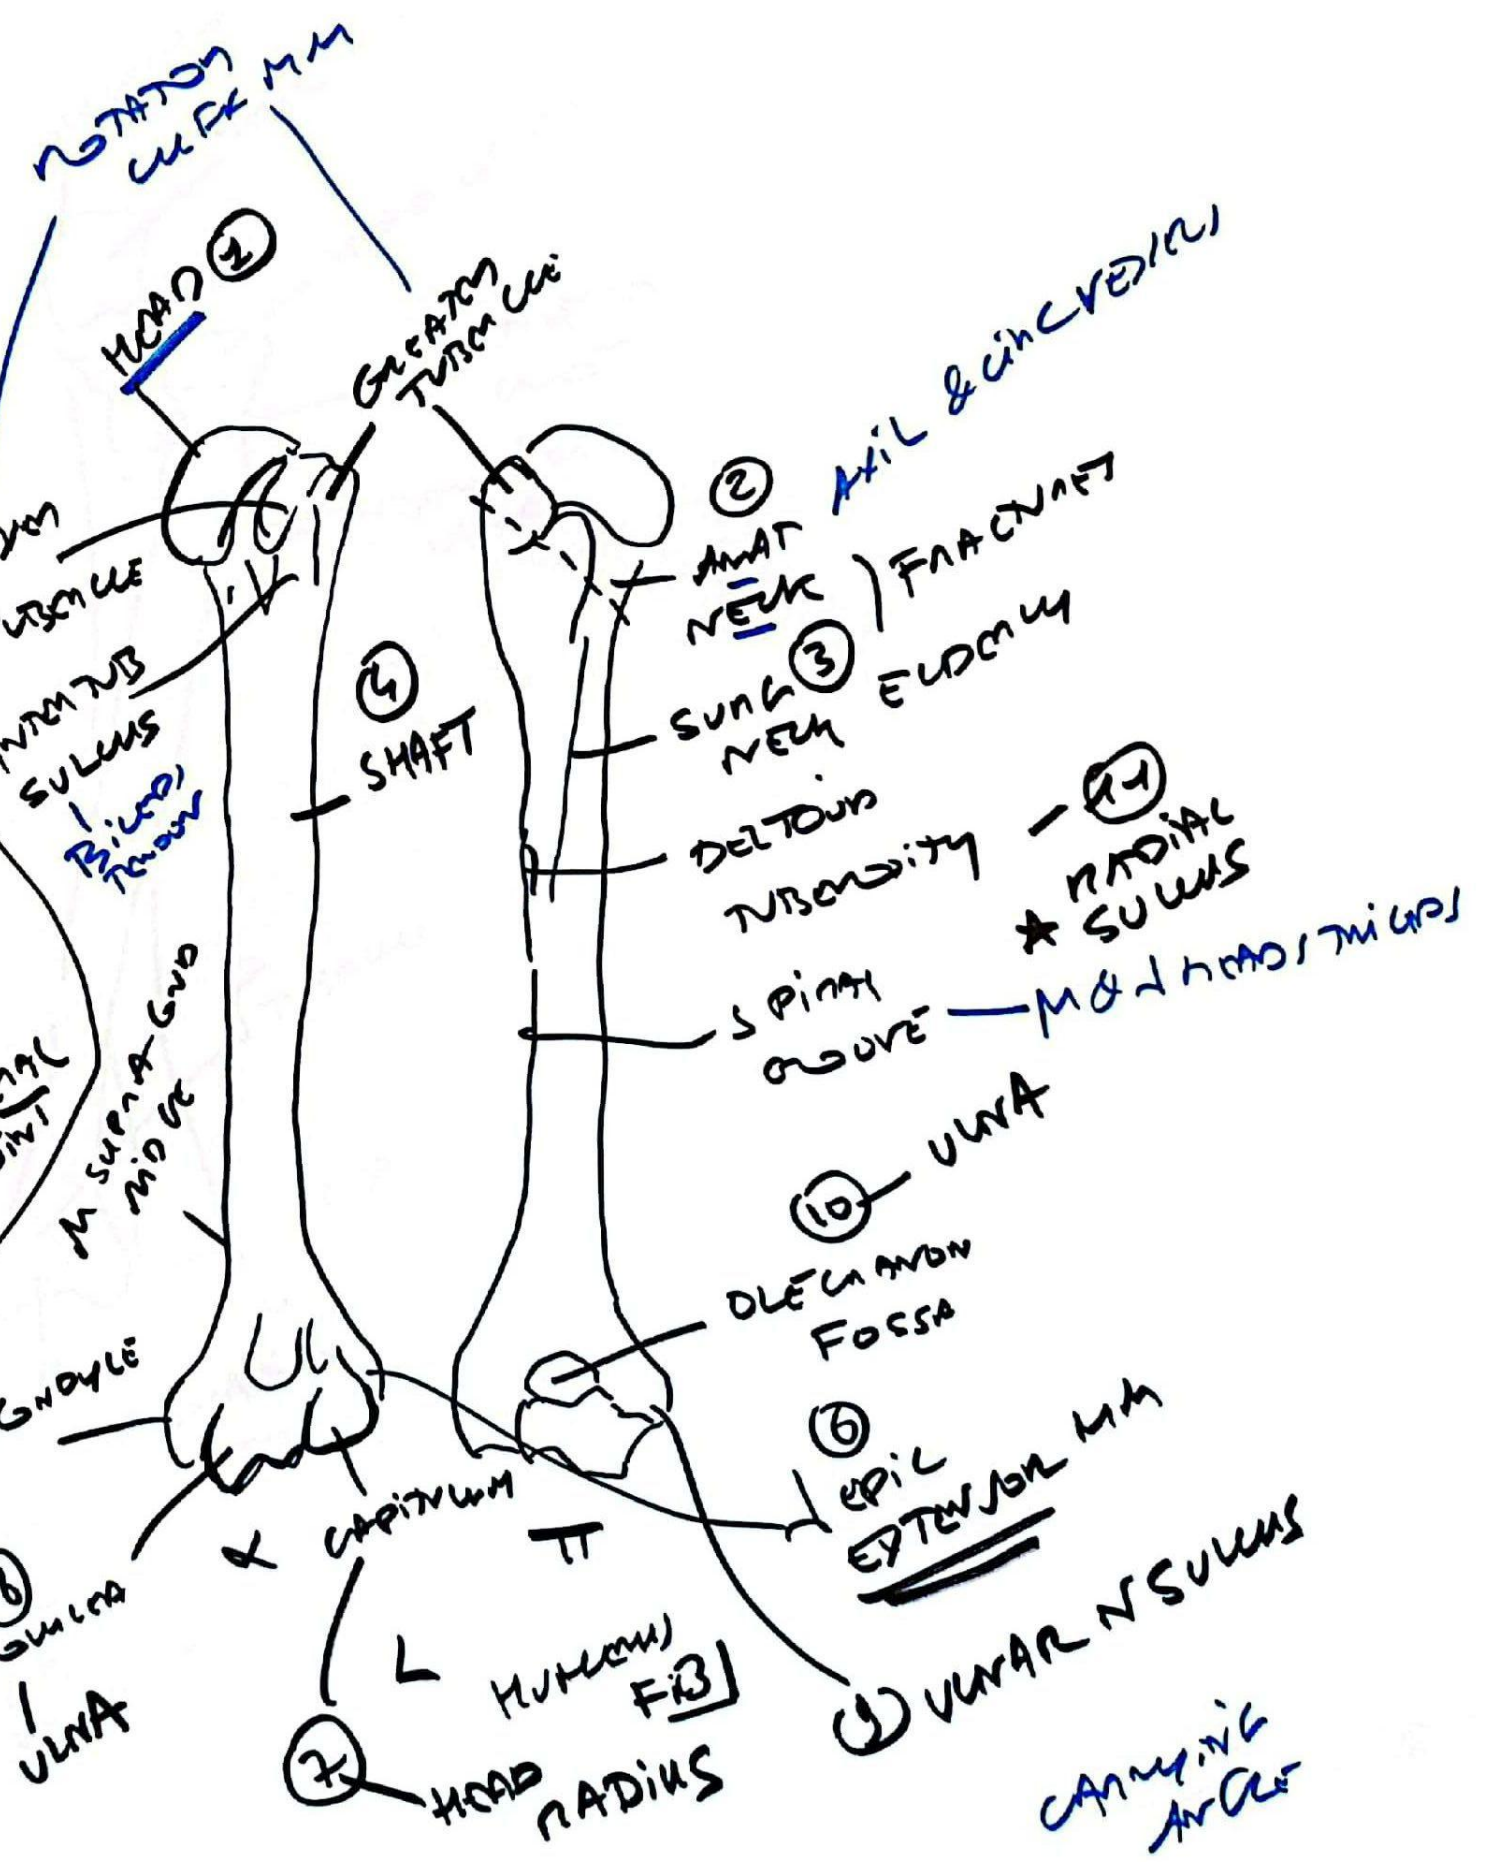 ROTATOR
CUFF MM
HEAD 1
GREATER
TUBERCLE
AXIL & CIRCUMFLEX
2
ANAT
NECK
FRACTURES
ELDERLY
3
SURG
NECK
UBERCLE
NTERTUB
SULCUS
BICEPS
TENDON
4
SHAFT
DELTOID
TUBEROSITY
11
★ RADIAL
SULCUS
SPIRAL
GROOVE
M & L HEADS TRICEPS
M SUPRA COND
RIDGE
10
ULNA
OLECRANON
FOSSA
CONDYLE
6
EPIC
EXTENSOR MM
CAPITULUM
ULNA
L
HUMERUS
7
HEAD
RADIUS
9 ULNAR N SULCUS
CARRYING
ANGLE